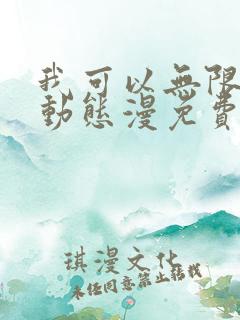 我可以無限
動態漫免費
琪漫文化
未经同意禁止转载